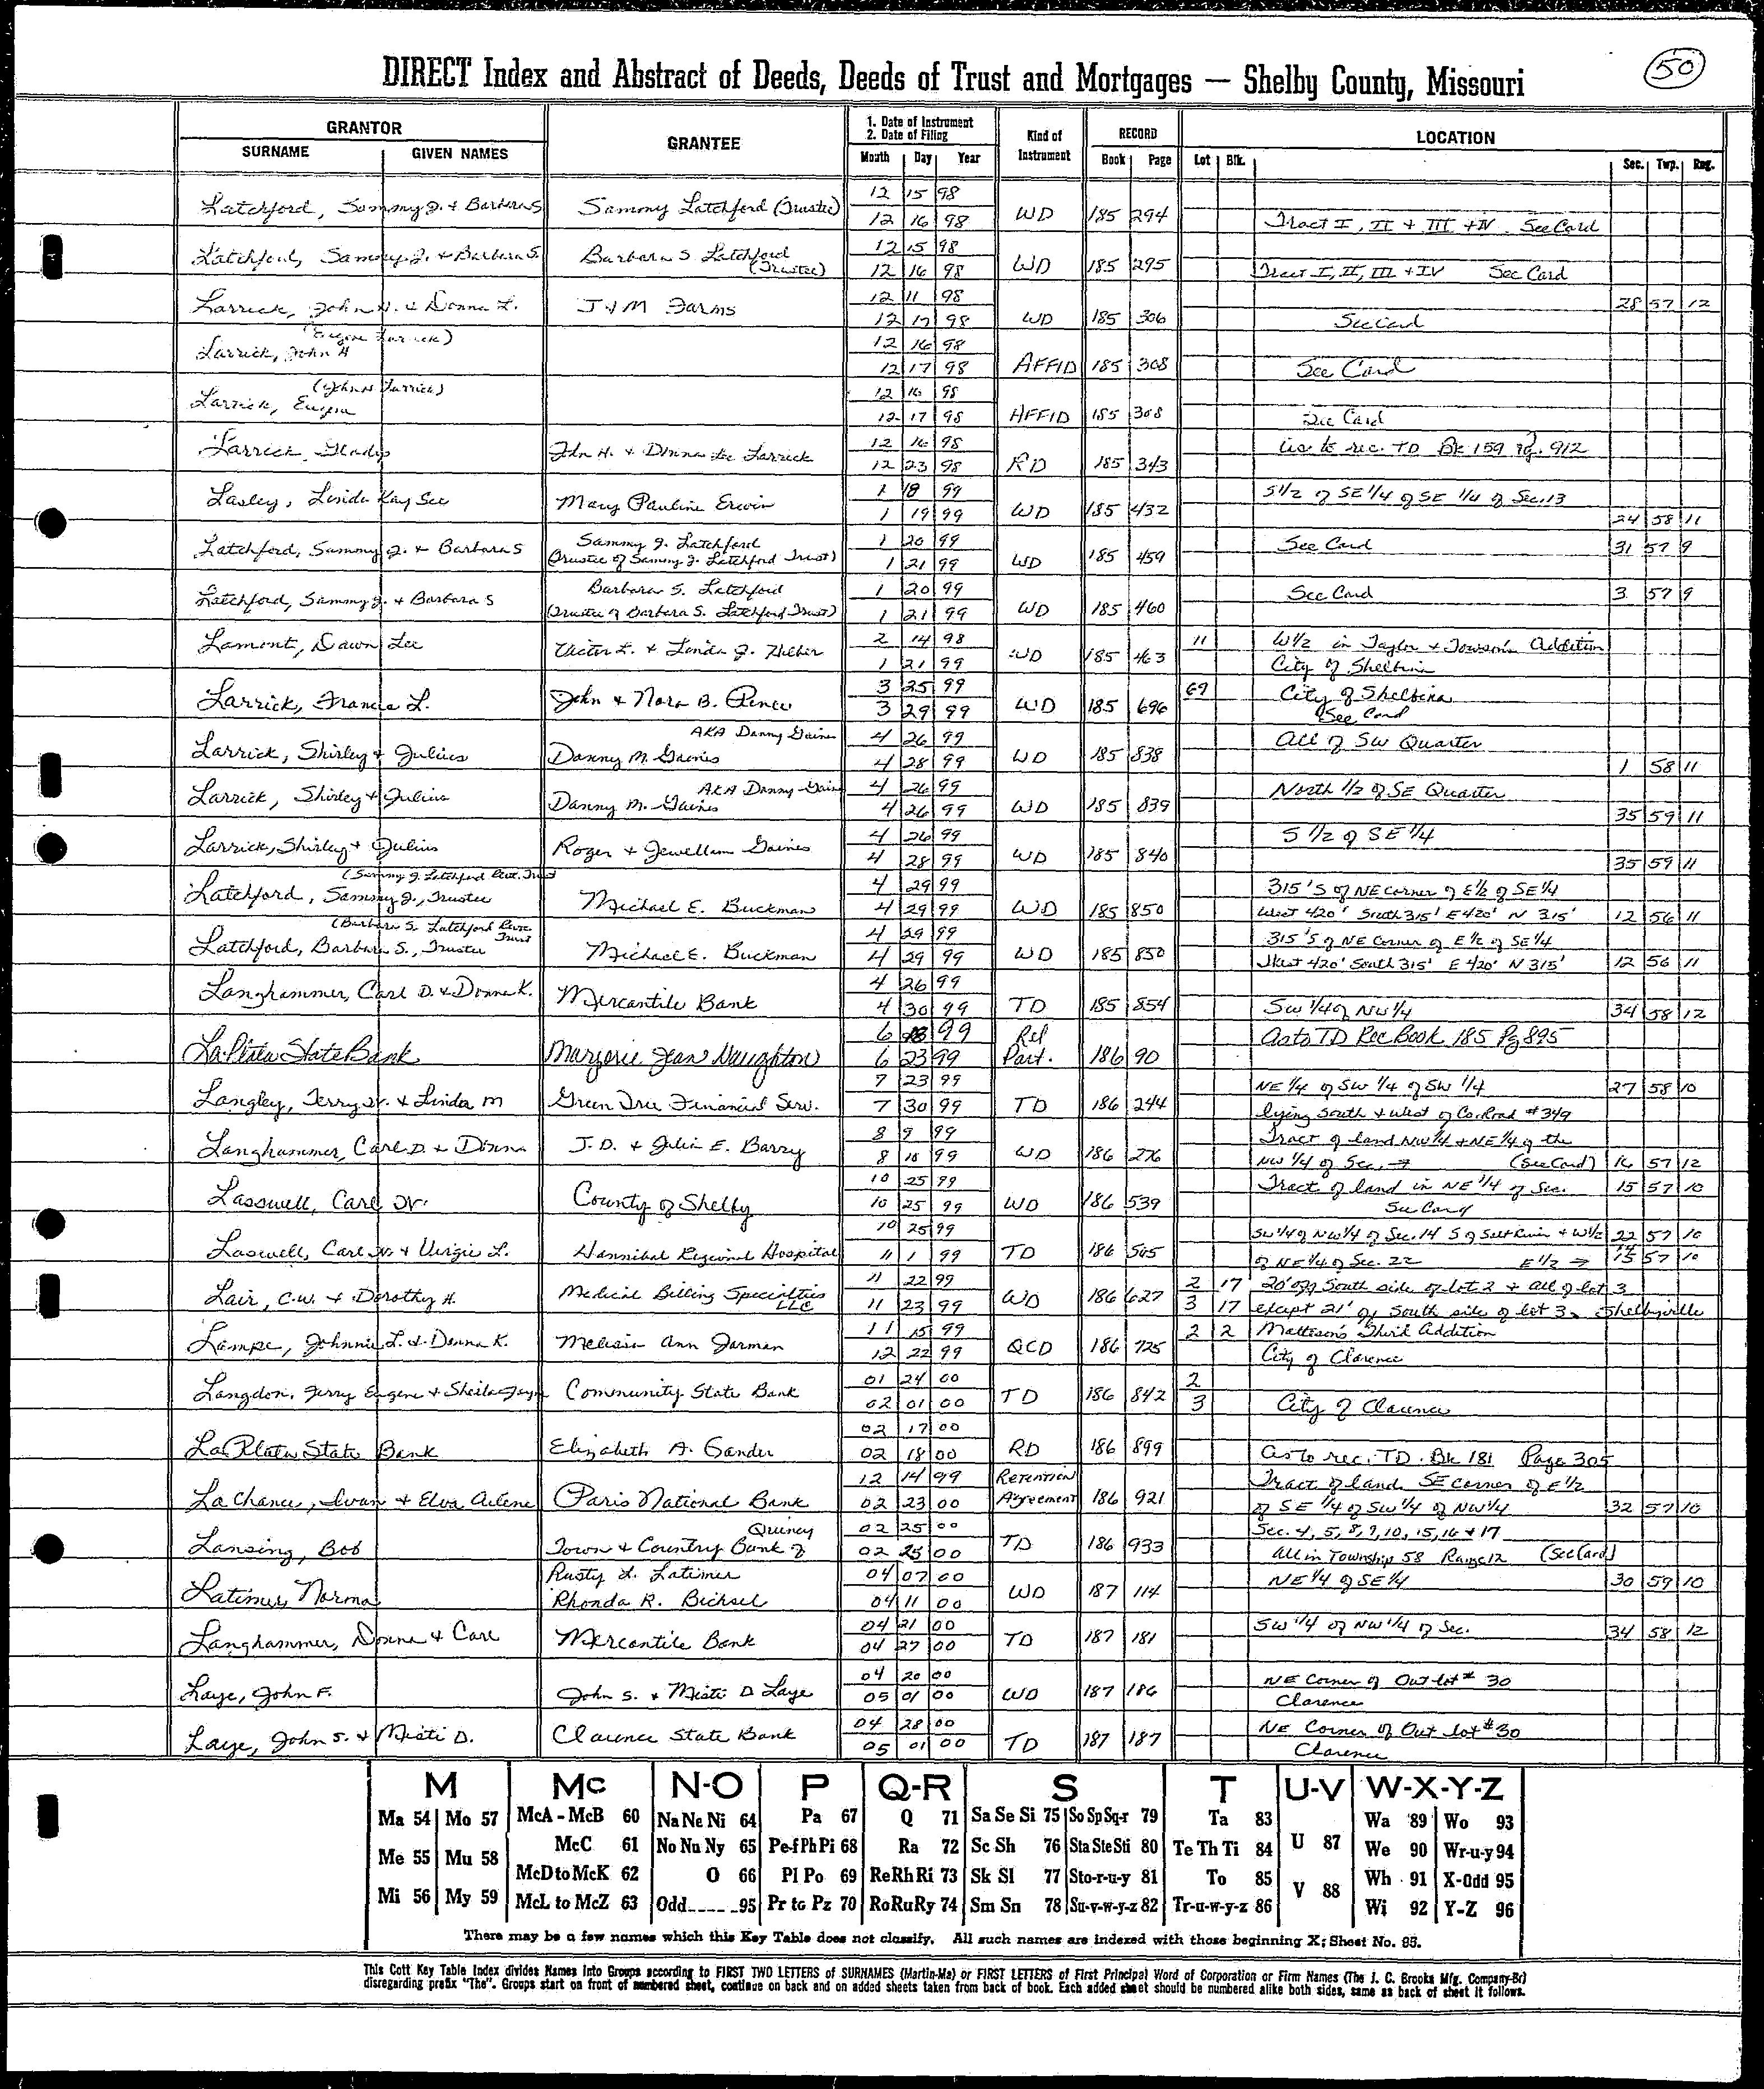 50
DIRECT Index and Abstract of Deeds, Deeds of Trust and Mortgages — Shelby County, Missouri
GRANTOR
SURNAME GIVEN NAMES
GRANTEE
1. Date of Instrument
2. Date of Filing
Month Day Year
Kind of Instrument
RECORD
Book Page
LOCATION
Lot Blk. Sec. Twp. Rng.
Latchford, Sammy J. + Barbara S Sammy Latchford (Trustee) 12 15 98
12 16 98 WD 185 294 Tract I, II + III + IV See Card
Latchford, Sammy J. + Barbara S. Barbara S Latchford (Trustee) 12 15 98
12 16 98 WD 185 295 Tract I, II, III + IV See Card
Larrick, John H. + Donna L. J + M Farms 12 11 98 28 57 12
12 17 98 WD 185 306 See Card
(Eugene Larrick) 12 16 98
Larrick, John H 12 17 98 AFFID 185 308 See Card
(John H Larrick) 12 16 98
Larrick, Eugene 12 17 98 AFFID 185 308 See Card
Larrick, Gladys John H. + Donna Lee Larrick 12 16 98 as to rec. TD Bk 159 Pg. 912
12 23 98 RD 185 343
Lasley, Linda Kay See Mary Pauline Erwin 1 18 99 S1/2 of SE 1/4 of SE 1/4 of Sec. 13
1 19 99 WD 185 432 24 58 11
Latchford, Sammy J. + Barbara S Sammy J. Latchford 1 20 99 See Card 31 57 9
(Trustee of Sammy J. Latchford Trust) 1 21 99 WD 185 459
Latchford, Sammy J. + Barbara S Barbara S. Latchford 1 20 99 See Card 3 57 9
(Trustee of Barbara S. Latchford Trust) 1 21 99 WD 185 460
Lamont, Dawn Lee Victor L. + Linda J. 2 14 98 11 W1/2 in Taylor + Towson's Addition
1 21 99 WD 185 463 City of Shelbina
Larrick, Francis L. John + Nora B. Pence 3 25 99 69 City of Shelbina
3 29 99 WD 185 696 See Card
AKA Danny Gaines 4 26 99 All of SW Quarter
Larrick, Shirley + Julius Danny M. Gaines 4 28 99 WD 185 838 1 58 11
AKA Danny Gaines 4 26 99 North 1/2 of SE Quarter
Larrick, Shirley + Julius Danny M. Gaines 4 26 99 WD 185 839 35 59 11
Larrick, Shirley + Julius Roger + Jewellann Gaines 4 26 99 S 1/2 of SE 1/4
4 28 99 WD 185 840 35 59 11
(Sammy J. Latchford Rev. Trust 4 29 99 315' S of NE corner of E1/2 of SE 1/4
Latchford, Sammy J., Trustee Michael E. Buckman 4 29 99 WD 185 850 West 420' South 315' E 420' N 315' 12 56 11
(Barbara S. Latchford Rev. Trust 4 29 99 315' S of NE Corner of E 1/2 of SE 1/4
Latchford, Barbara S., Trustee Michael E. Buckman 4 29 99 WD 185 850 West 420' South 315' E 420' N 315' 12 56 11
Langhammer, Carl D. + Donna K. Mercantile Bank 4 26 99
4 30 99 TD 185 854 SW 1/4 of NW 1/4 34 58 12
LaPlata State Bank Marjorie Jean Naughton 6 18 99 Rel As to TD Rec Book 185 Pg 895
6 23 99 Part. 186 90
Langley, Terry Jr. + Linda M Green Tree Financial Serv. 7 23 99 NE 1/4 of SW 1/4 of SW 1/4 27 58 10
7 30 99 TD 186 244 lying South + West of Co. Road #349
Langhammer, Carl D. + Donna J. D. + Julia E. Barry 8 9 99 Tract of land NW 1/4 + NE 1/4 of the
8 10 99 WD 186 276 NW 1/4 of Sec. → (See Card) 16 57 12
Lasswell, Carl Jr. County of Shelby 10 25 99 Tract of land in NE 1/4 of Sec. 15 57 10
10 25 99 WD 186 539 See Card
Laswell, Carl Jr. + Virgie L. Hannibal Regional Hospital 10 25 99 SW 1/4 of NW 1/4 of Sec. 14 S of Salt River + W 1/2 22 57 10
11 1 99 TD 186 565 of NE 1/4 of Sec. 22 E 1/2 → 15 57 10
Lair, C.W. + Dorothy H. Medical Billing Specialties LLC 11 22 99 2 17 20' off South side of lot 2 + all of lot 3
11 23 99 WD 186 627 3 17 except 21' of South side of lot 3, Shelbyville
Lampe, Johnnie L. + Donna K. Melissa Ann Jarman 11 15 99 2 2 Matteson's Third Addition
12 22 99 QCD 186 725 City of Clarence
Langdon, Jerry Eugene + Sheila Jayne Community State Bank 01 24 00 2
02 01 00 TD 186 842 3 City of Clarence
LaPlata State Bank Elizabeth A. Gander 02 17 00
02 18 00 RD 186 899 as to rec. TD. Bk 181 Page 305
La Chance, Ivan + Elva Arlene Paris National Bank 12 14 99 Retention Tract of land SE corner of E 1/2
02 23 00 Agreement 186 921 of SE 1/4 of SW 1/4 of NW 1/4 32 57 10
Quincy 02 25 00 Sec. 4, 5, 8, 9, 10, 15, 16 + 17
Lansing, Bob Town + Country Bank of 02 25 00 TD 186 933 All in Township 58 Range 12 (See Card)
Rusty L. Latimer 04 07 00 NE 1/4 of SE 1/4 30 59 10
Latimer, Norma Rhonda R. Bichsel 04 11 00 WD 187 114
Langhammer, Donna + Carl Mercantile Bank 04 21 00 SW 1/4 of NW 1/4 of Sec. 34 58 12
04 27 00 TD 187 181
Laye, John F. John S. + Misti D Laye 04 20 00 NE Corner of Out lot # 30
05 01 00 WD 187 186 Clarence
Laye, John S. + Misti D. Clarence State Bank 04 28 00 NE Corner of Out lot #30
05 01 00 TD 187 187 Clarence
M Mc N-O P Q-R S T U-V W-X-Y-Z
Ma 54 Mo 57 McA - McB 60 Na Ne Ni 64 Pa 67 Q 71 Sa Se Si 75 So Sp Sq-r 79 Ta 83 Wa 89 Wo 93
Me 55 Mu 58 McC 61 No Nu Ny 65 Pe-f Ph Pi 68 Ra 72 Sc Sh 76 Sta Ste Sti 80 Te Th Ti 84 U 87 We 90 Wr-u-y 94
McD to McK 62 O 66 Pl Po 69 Re Rh Ri 73 Sk Sl 77 Sto-r-u-y 81 To 85 V 88 Wh 91 X-Odd 95
Mi 56 My 59 McL to McZ 63 Odd 95 Pr to Pz 70 Ro Ru Ry 74 Sm Sn 78 Su-v-w-y-z 82 Tr-u-w-y-z 86 Wi 92 Y-Z 96
There may be a few names which this Key Table does not classify. All such names are indexed with those beginning X; Sheet No. 95.
This Cott Key Table Index divides Names into Groups according to FIRST TWO LETTERS of SURNAMES (Martin-Ma) or FIRST LETTERS of First Principal Word of Corporation or Firm Names (The J. C. Brooks Mfg. Company-Br)
disregarding prefix "The". Groups start on front of numbered sheet, continue on back and on added sheets taken from back of book. Each added sheet should be numbered alike both sides, same as back of sheet it follows.